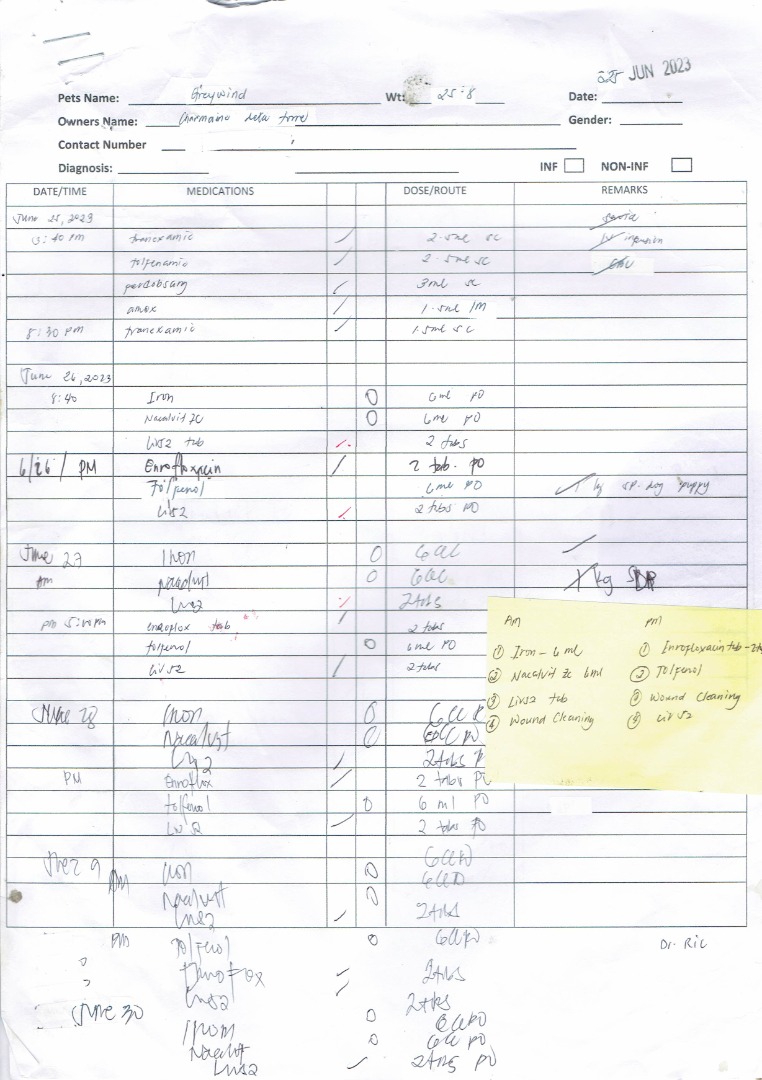 25 JUN 2023
Pets Name: Greywind Wt: 25.8 Date:
Owners Name: Charmaine dela torre Gender:
Contact Number
Diagnosis: INF NON-INF
DATE/TIME MEDICATIONS DOSE/ROUTE REMARKS
June 25, 2023
:40 pm tranexamic 2.5ml sc IV infusion
tolfenamic 2.5ml sc
3ml sc
amox 1.5ml IM
8:30 pm tranexamic 1.5ml sc
June 26, 2023
8:40 Iron 6ml PO
Nacalvit ZC 6ml PO
Liv52 tab 2 tabs
6/26 / PM Enrofloxacin 2 tab. PO
Tolfenol 6ml PO 1 kg sp. dog puppy
Liv52 2 tabs PO
June 27 Iron 6CC
Am Nacalvit 6CC 1 kg SDP
Liv52 2tabs
pm enroflox tab 2 tabs
tolfenol 6ml PO
Liv52 2 tabs
June 28 Iron 6CC P
Nacalvit 6CC PO
Liv52 2tabs P
PM Enroflox 2 tabs PO
tolfenol 6 ml PO
Liv52 2 tabs PO
June 29 AM Iron 6CC PO
Nacalvit 6CC PO
Liv52 2tabs
PM Tolfenol 6CC PO
Enroflox 2tabs
Liv52 2tabs
June 30 Iron 6CC PO
Nacalvit 6CC PO
Liv52 2tabs PO
Am pm
① Iron - 6 ml ① Inrofloxacin tab - 2
② Nacalvit Zc 6ml ② Tolfenol
③ Liv52 tab ③ Wound Cleaning
④ Wound Cleaning Liv 52
Dr. Ric